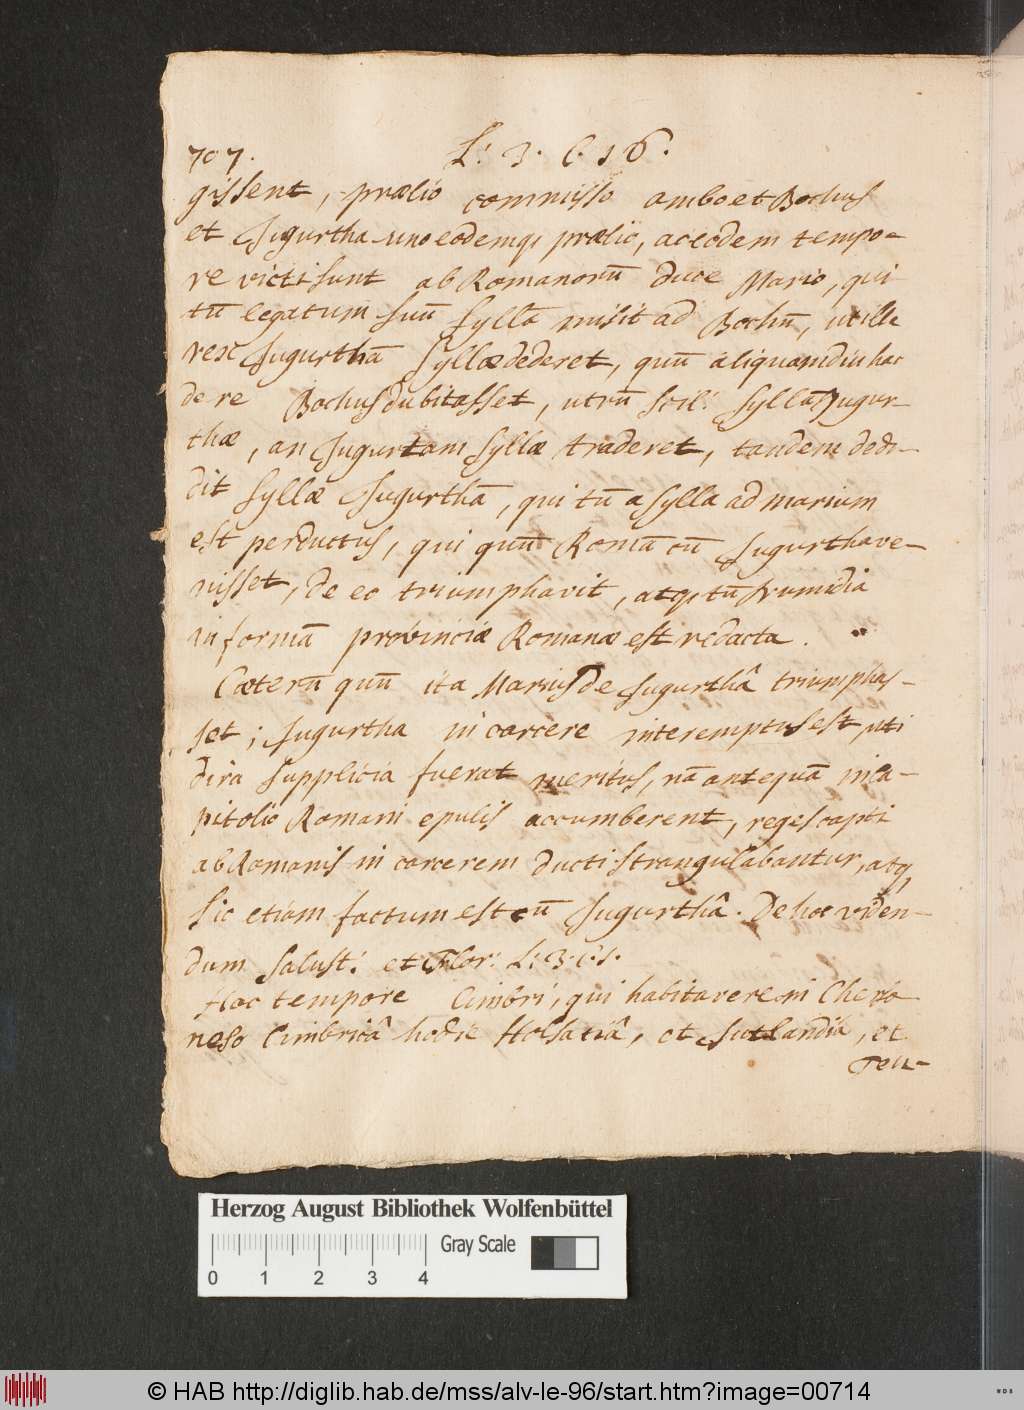 707. L: 3. C. 16.
gissent, prælio commisso ambo et Bochus
et Jugurtha uno eodemq; prælio, ac eodem tempo-
re victi sunt ab Romanorū duce Mario, qui
tū legatum suū Syllā misit ad Bochū, ut ille
rex Jugurthā Syllæ dederet, quū aliquamdiu hac
de re Bochus dubitasset, utrū scil: Syllā Jugur-
thæ, an Jugurtam Syllæ traderet, tandem dedi-
dit Syllæ Jugurthā, qui tū a Sylla ad Marium
est perductus, qui quū Romā cū Jugurtha ve-
nisset, de eo triumphavit, atq; tū Numidia
in formā provinciæ Romanæ est redacta.
Cæterū quū ita Marius de Jugurthâ triumphas-
set; Jugurtha in carcere interemptus est, uti
dira supplicia fuerat meritus, nā antequā in Ca-
pitolio Romani epulis accumberent, reges capti
ab Romanis in carcerem ducti strangulabantur, atq;
sic etiam factum est cū Jugurthâ. De hoc viden-
dum Salust: et Flor: L: 3. C. 1.
Hoc tempore Cimbri, qui habitavere in Cherso
neso Cimbricâ hodie Holsatiâ, et Jutlandiâ, et
Teu-
Herzog August Bibliothek Wolfenbüttel
Gray Scale
0 1 2 3 4
© HAB http://diglib.hab.de/mss/alv-le-96/start.htm?image=00714